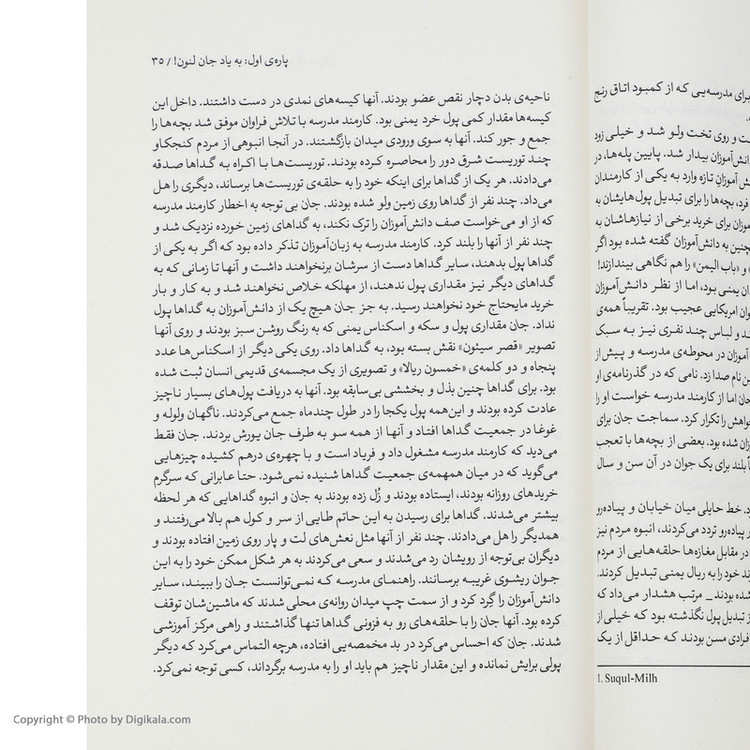 برای مدرسه‌یی که از کمبود اتاق رنج
ت و روی تخت ولو شد و خیلی زود
انش‌آموزان بیدار شد. پایین پله‌ها، در
ش آموزان تازه وارد به یکی از کارمندان
فرد، بچه‌ها را برای تبدیل پول‌هایشان به
موزان برای خرید برخی از نیازهاشان به
چنین به دانش‌آموزان گفته شده بود اگر
و «باب الیمن» را هم نگاهی بیندازند!
ان یمنی بود، اما از نظر دانش‌آموزان
وان امریکایی عجیب بود. تقریباً همه‌ی
ند و لباس چند نفری نیز به سبک
آموزان در محوطه‌ی مدرسه و پیش از
ین نام صدا زد. نامی که در گذرنامه‌ی او
جان اما از کارمند مدرسه خواست او را
خواهش را تکرار کرد. سماجت جان برای
زان شده بود. بعضی از بچه‌ها با تعجب
بلند برای یک جوان در آن سن و سال
د. خط حایلی میان خیابان و پیاده‌رو
ر پیاده‌رو تردد می‌کردند، انبوه مردم نیز
در مقابل مغازه‌ها حلقه‌هایی از مردم
ند خود را به ریال یمنی تبدیل کردند.
شده بودند_ مرتب هشدار می‌داد که
ز تبدیل پول نگذشته بود که خیلی از
افرادی مسن بودند که حداقل از یک
1. Suqul-Milh
پاره‌ی اول: به یاد جان لنون! / ۳۵
ناحیه‌ی بدن دچار نقص عضو بودند. آنها کیسه‌های نمدی در دست داشتند. داخل این
کیسه‌ها مقدار کمی پول خرد یمنی بود. کارمند مدرسه با تلاش فراوان موفق شد بچه‌ها را
جمع و جور کند. آنها به سوی ورودی میدان بازگشتند. در آنجا انبوهی از مردم کنجکاو
چند توریست شرق دور را محاصره کرده بودند. توریست‌ها با اکراه به گداها صدقه
می‌دادند. هر یک از گداها برای اینکه خود را به حلقه‌ی توریست‌ها برساند، دیگری را هل
می‌داد. چند نفر از گداها روی زمین ولو شده بودند. جان بی توجه به اخطار کارمند مدرسه
که از او می‌خواست صف دانش‌آموزان را ترک نکند، به گداهای زمین خورده نزدیک شد و
چند نفر از آنها را بلند کرد. کارمند مدرسه به زبان‌آموزان تذکر داده بود که اگر به یکی از
گداها پول بدهند، سایر گداها دست از سرشان برنخواهند داشت و آنها تا زمانی که به
گداهای دیگر نیز مقداری پول ندهند، از مهلکه خلاص نخواهند شد و به کار و بار
خرید مایحتاج خود نخواهند رسید. به جز جان هیچ یک از دانش‌آموزان به گداها پول
نداد. جان مقداری پول و سکه و اسکناس یمنی که به رنگ روشن سبز بودند و روی آنها
تصویر «قصر سیئون» نقش بسته بود، به گداها داد. روی یکی دیگر از اسکناس‌ها عدد
پنجاه و دو کلمه‌ی «خمسون ریالا» و تصویری از یک مجسمه‌ی قدیمی انسان ثبت شده
بود. برای گداها چنین بذل و بخششی بی‌سابقه بود. آنها به دریافت پول‌های بسیار ناچیز
عادت کرده بودند و این‌همه پول یکجا را در طول چندماه جمع می‌کردند. ناگهان ولوله و
غوغا در جمعیت گداها افتاد و آنها از همه سو به طرف جان یورش بردند. جان فقط
می‌دید که کارمند مدرسه مشغول داد و فریاد است و با چهره‌ی درهم کشیده چیزهایی
می‌گوید که در میان همهمه‌ی جمعیت گداها شنیده نمی‌شود. حتا عابرانی که سرگرم
خریدهای روزانه بودند، ایستاده بودند و زُل زده بودند به جان و انبوه گداهایی که هر لحظه
بیشتر می‌شدند. گداها برای رسیدن به این حاتم طایی از سر و کول هم بالا می‌رفتند و
همدیگر را هل می‌دادند. چند نفر از آنها مثل نعش‌های لت و پار روی زمین افتاده بودند و
دیگران بی‌توجه از رویشان رد می‌شدند و سعی می‌کردند به هر شکل ممکن خود را به این
جوان ریشوی غریبه برسانند. راهنمای مدرسه که نمی‌توانست جان را ببیند، سایر
دانش‌آموزان را گِرد کرد و از سمت چپ میدان روانه‌ی محلی شدند که ماشین‌شان توقف
کرده بود. آنها جان را با حلقه‌های رو به فزونی گداها تنها گذاشتند و راهی مرکز آموزشی
شدند. جان که احساس می‌کرد در بد مخمصه‌یی افتاده، هرچه التماس می‌کرد که دیگر
پولی برایش نمانده و این مقدار ناچیز هم باید او را به مدرسه برگرداند، کسی توجه نمی‌کرد.
Copyright © Photo by Digikala.com